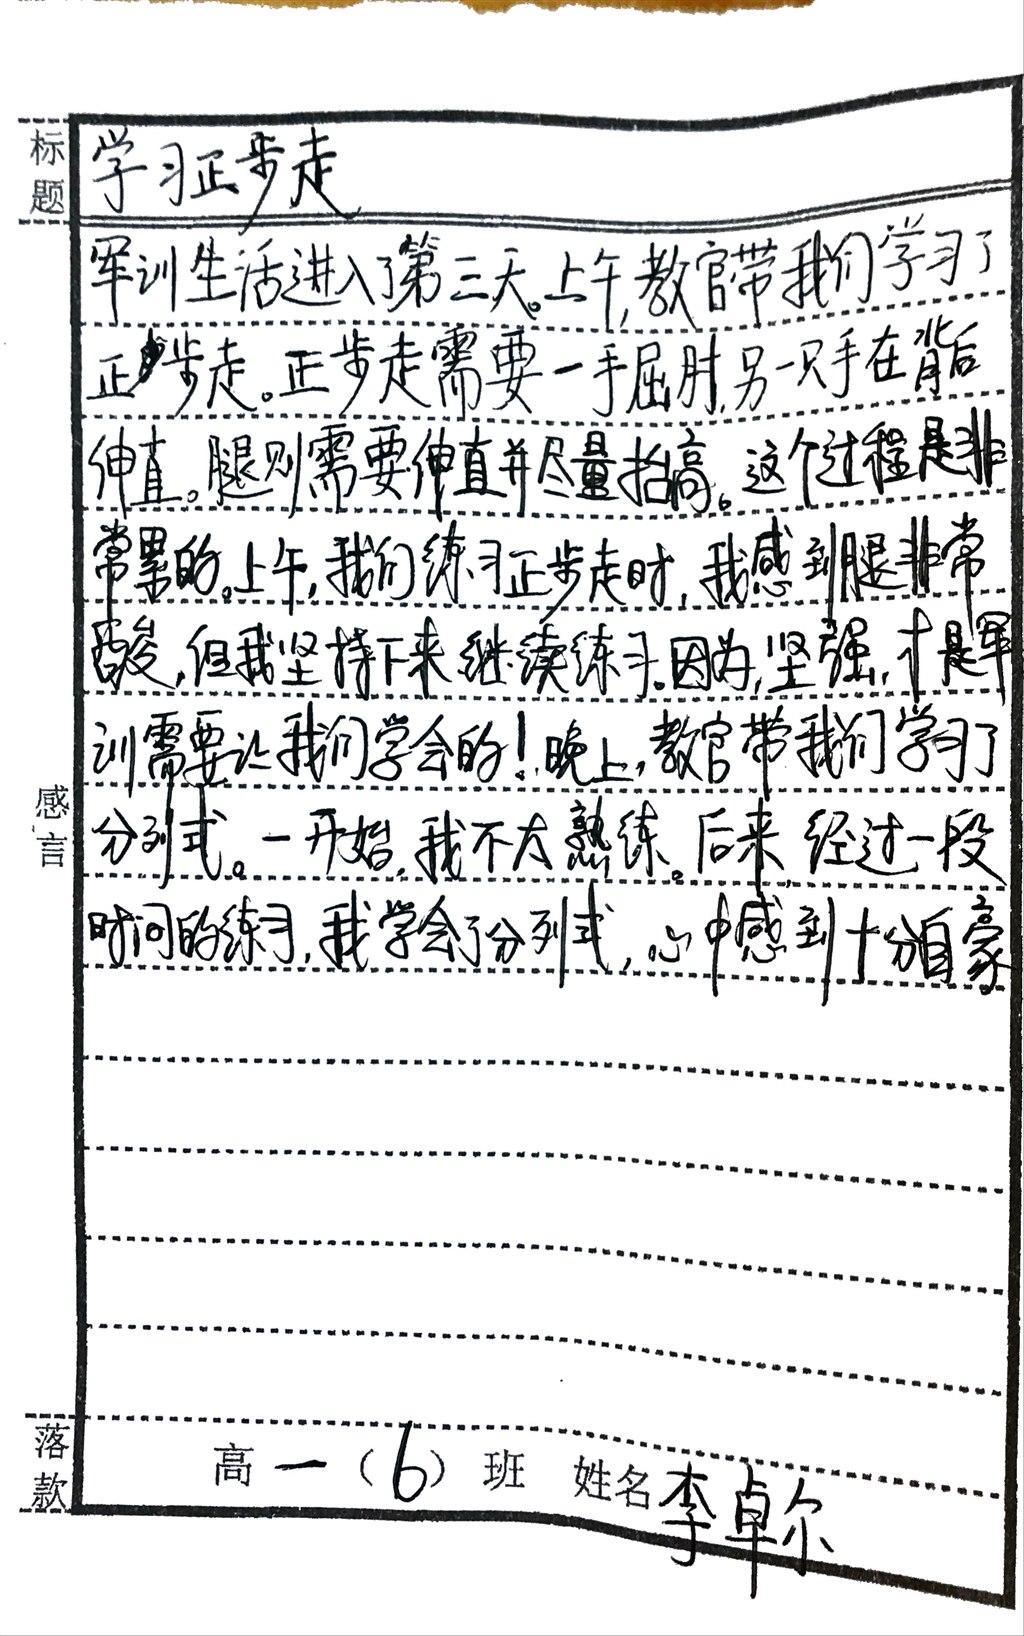 标题
学习正步走
军训生活进入了第三天。上午,教官带我们学习了
正步走。正步走需要一手屈肘,另一只手在背后
伸直。腿则需要伸直并尽量抬高。这个过程是非
常累的。上午,我们练习正步走时,我感到腿非常
酸,但我坚持下来继续练习。因为,坚强,才是军
训需要让我们学会的!晚上,教官带我们学习了
分列式。一开始,我不大熟练。后来,经过一段
时间的练习,我学会了分列式,心中感到十分自豪
感言
落款
高一(6)班 姓名李卓尔